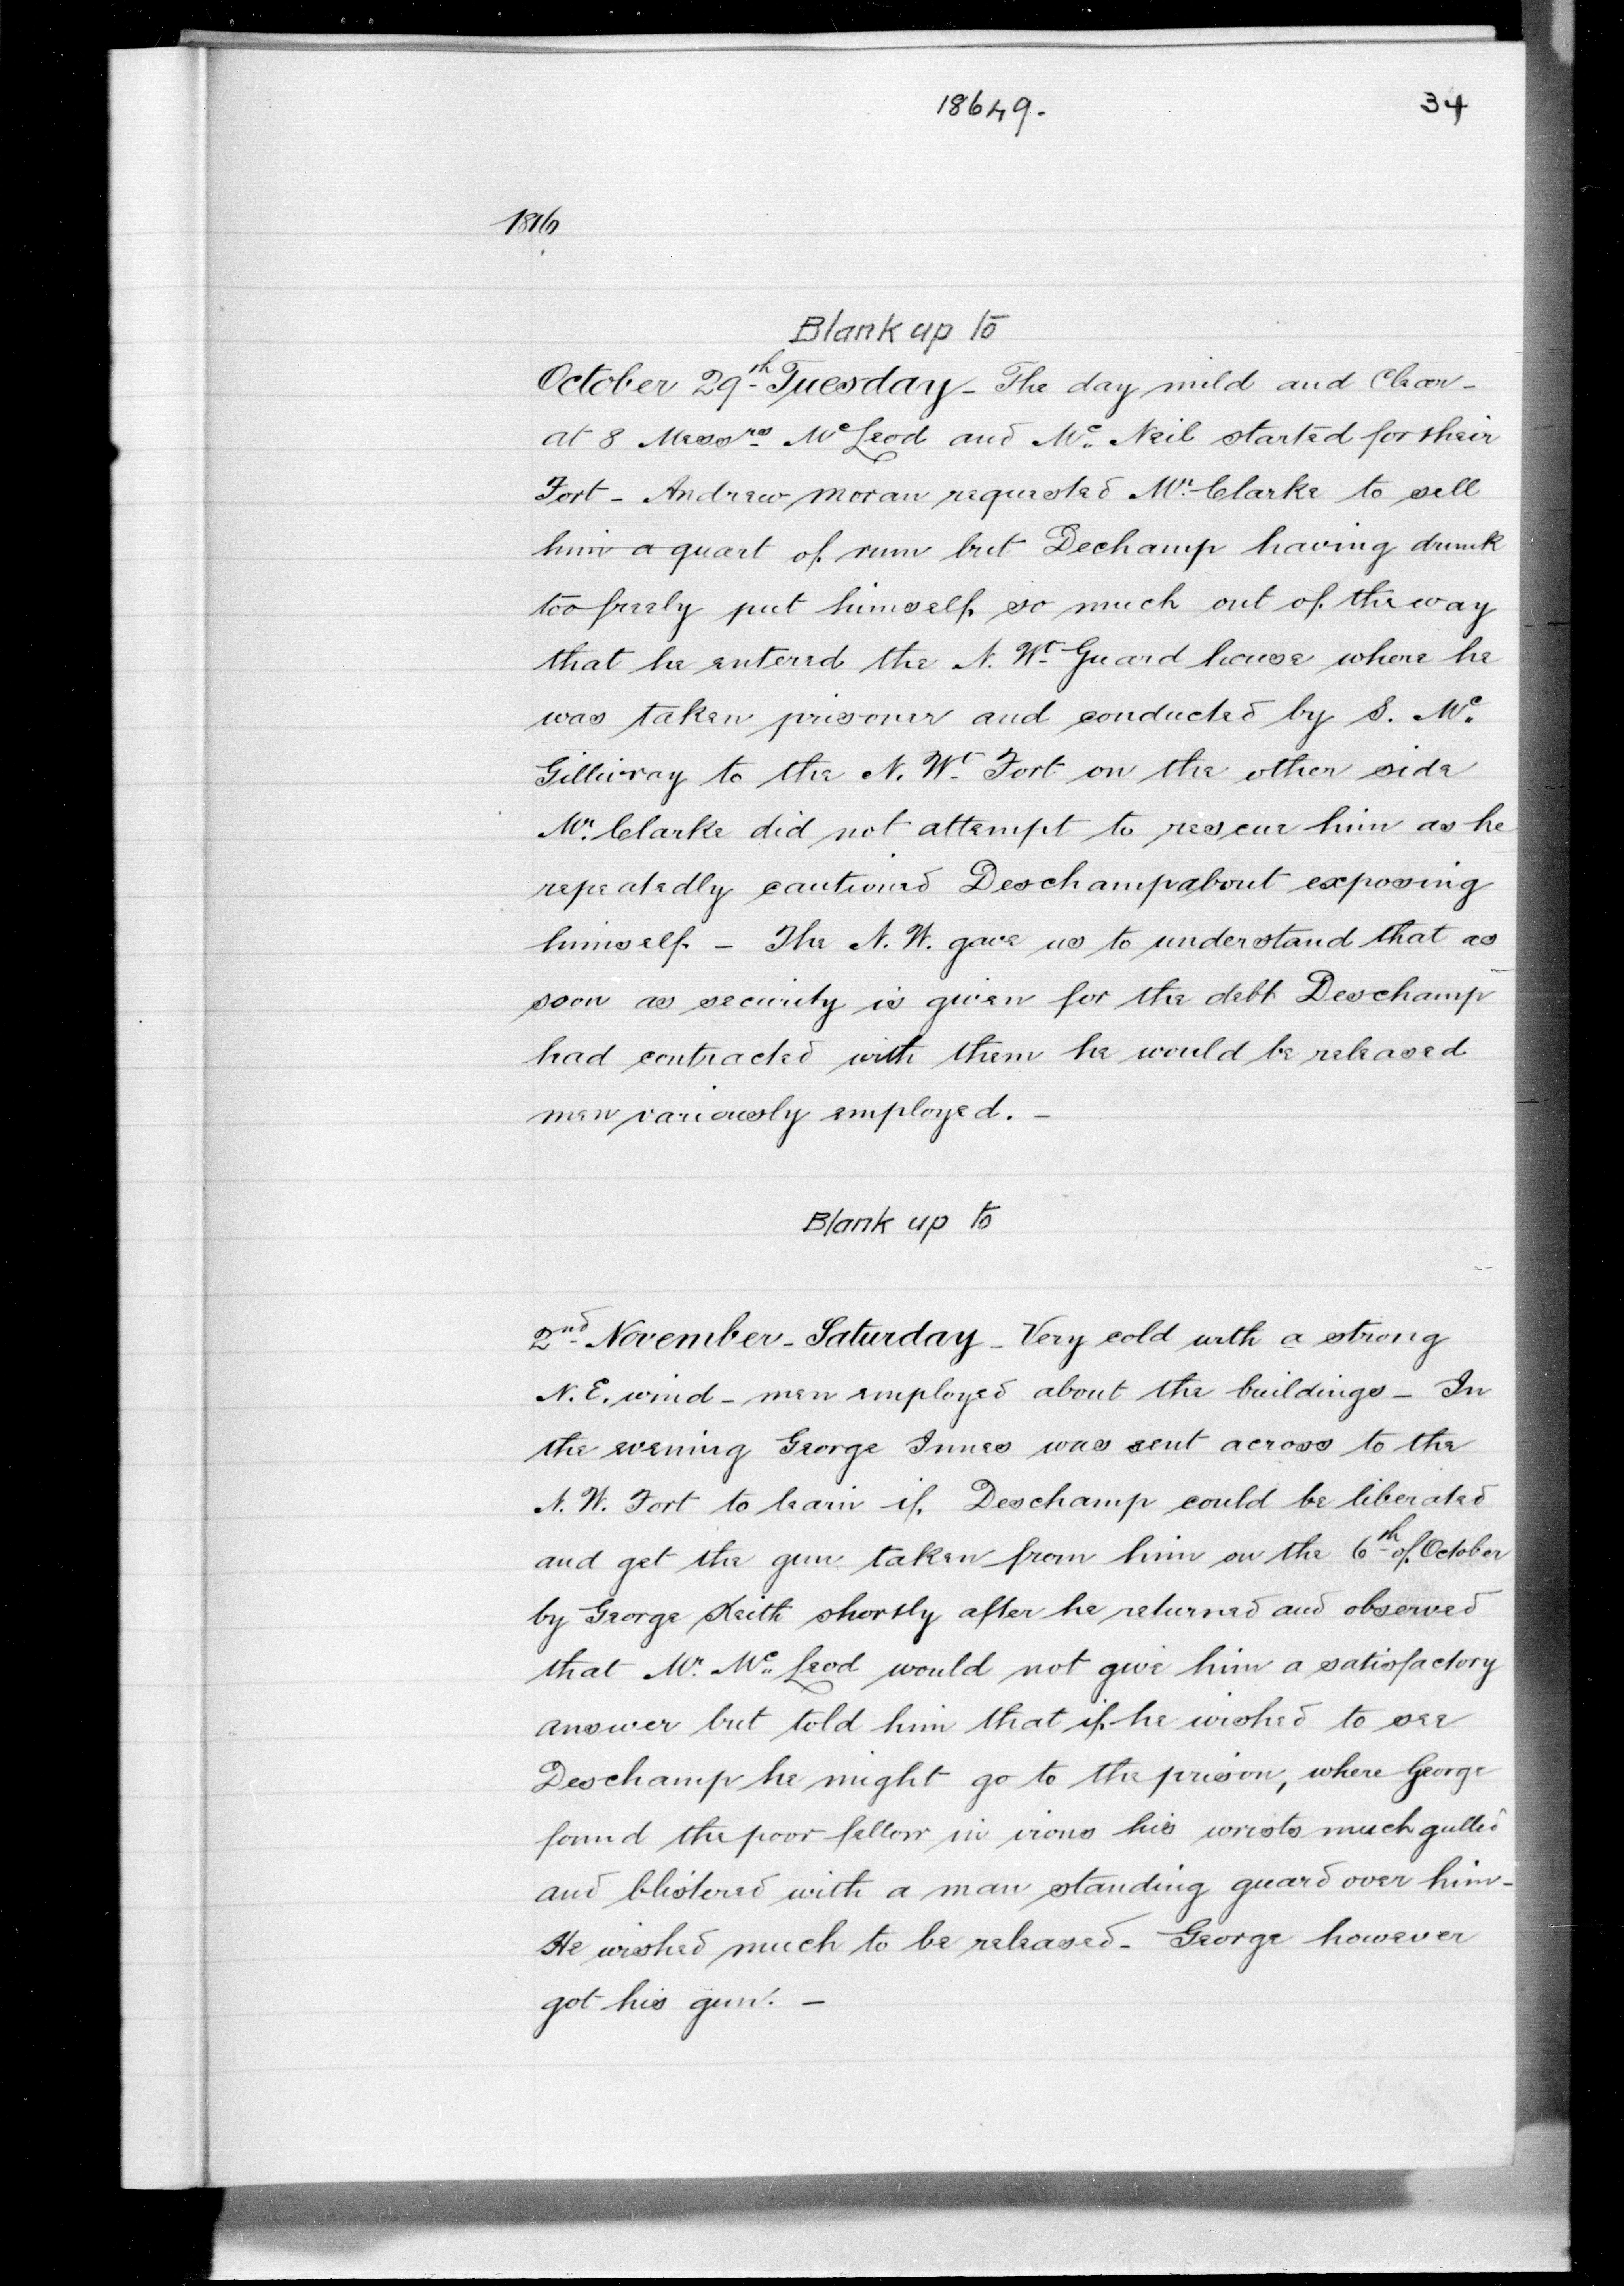 18649.
34
1816
Blank up to
October 29th Tuesday - The day mild and clear -
at 8 Messrs McLeod and Mc. Neil started for their
Fort - Andrew Moran requested Mr. Clarke to sell
him a quart of rum but Dechamp having drunk
too freely put himself so much out of the way
that he entered the N. Wt Guard house where he
was taken prisoner and conducted by S. Mc.
Gillivray to the N. Wt Fort on the other side
Mr. Clarke did not attempt to rescue him as he
repeatedly cautioned Deschamp about exposing
himself - The N. W. gave us to understand that as
soon as security is given for the debt Deschamp
had contracted with them he would be released
men variously employed. -
Blank up to
2nd November - Saturday - Very cold with a strong
N. E. wind - men employed about the buildings - In
the evening George Innes was sent across to the
N. W. Fort to learn if Deschamp could be liberated
and get the gun taken from him on the 6th of October
by George Keith shortly after he returned and observed
that Mr. Mc. Leod would not give him a satisfactory
answer but told him that if he wished to see
Deschamp he might go to the prison, where George
found the poor fellow in irons his wrists much gulled
and blistered with a man standing guard over him -
He wished much to be released - George however
got his gun. -